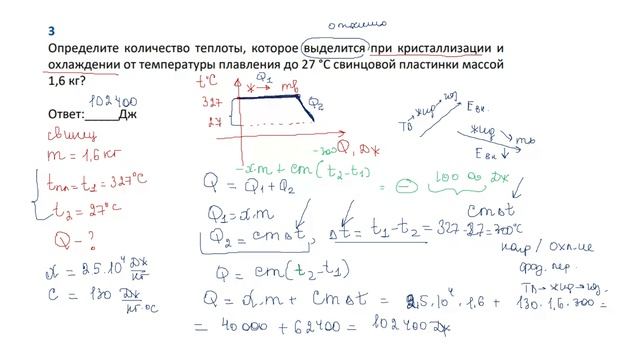 3
отпало
Определите количество теплоты, которое выделится при кристаллизации и
охлаждении от температуры плавления до 27 °C свинцовой пластинки массой
1,6 кг?
Ответ: 102400 Дж
свинец
m = 1,6 кг
tпл = t1 = 327°C
t2 = 27°C
Q - ?
λ = 2,5·10⁴ Дж/кг
c = 130 Дж/кг·°C
t°C
Q1
ж → тв
327
Q2
27
Q, Дж
-λm + cm(t2-t1)
Q = Q1 + Q2 = - 100 00 Дж
Q1 = λ·m
Q2 = cmΔt, Δt = t1 - t2 = 327 - 27 = 300°C
Q = cm(t2-t1)
Q = λ·m + cmΔt = 2,5·10⁴·1,6 + 130·1,6·300 =
= 40000 + 62400 = 102400 Дж
ТВ → жид → газ
Eвн.
жид → тв
Eвн ↓
cmΔt
нагр / охл-ие
фаз. пер.
ТВ → жид → газ.